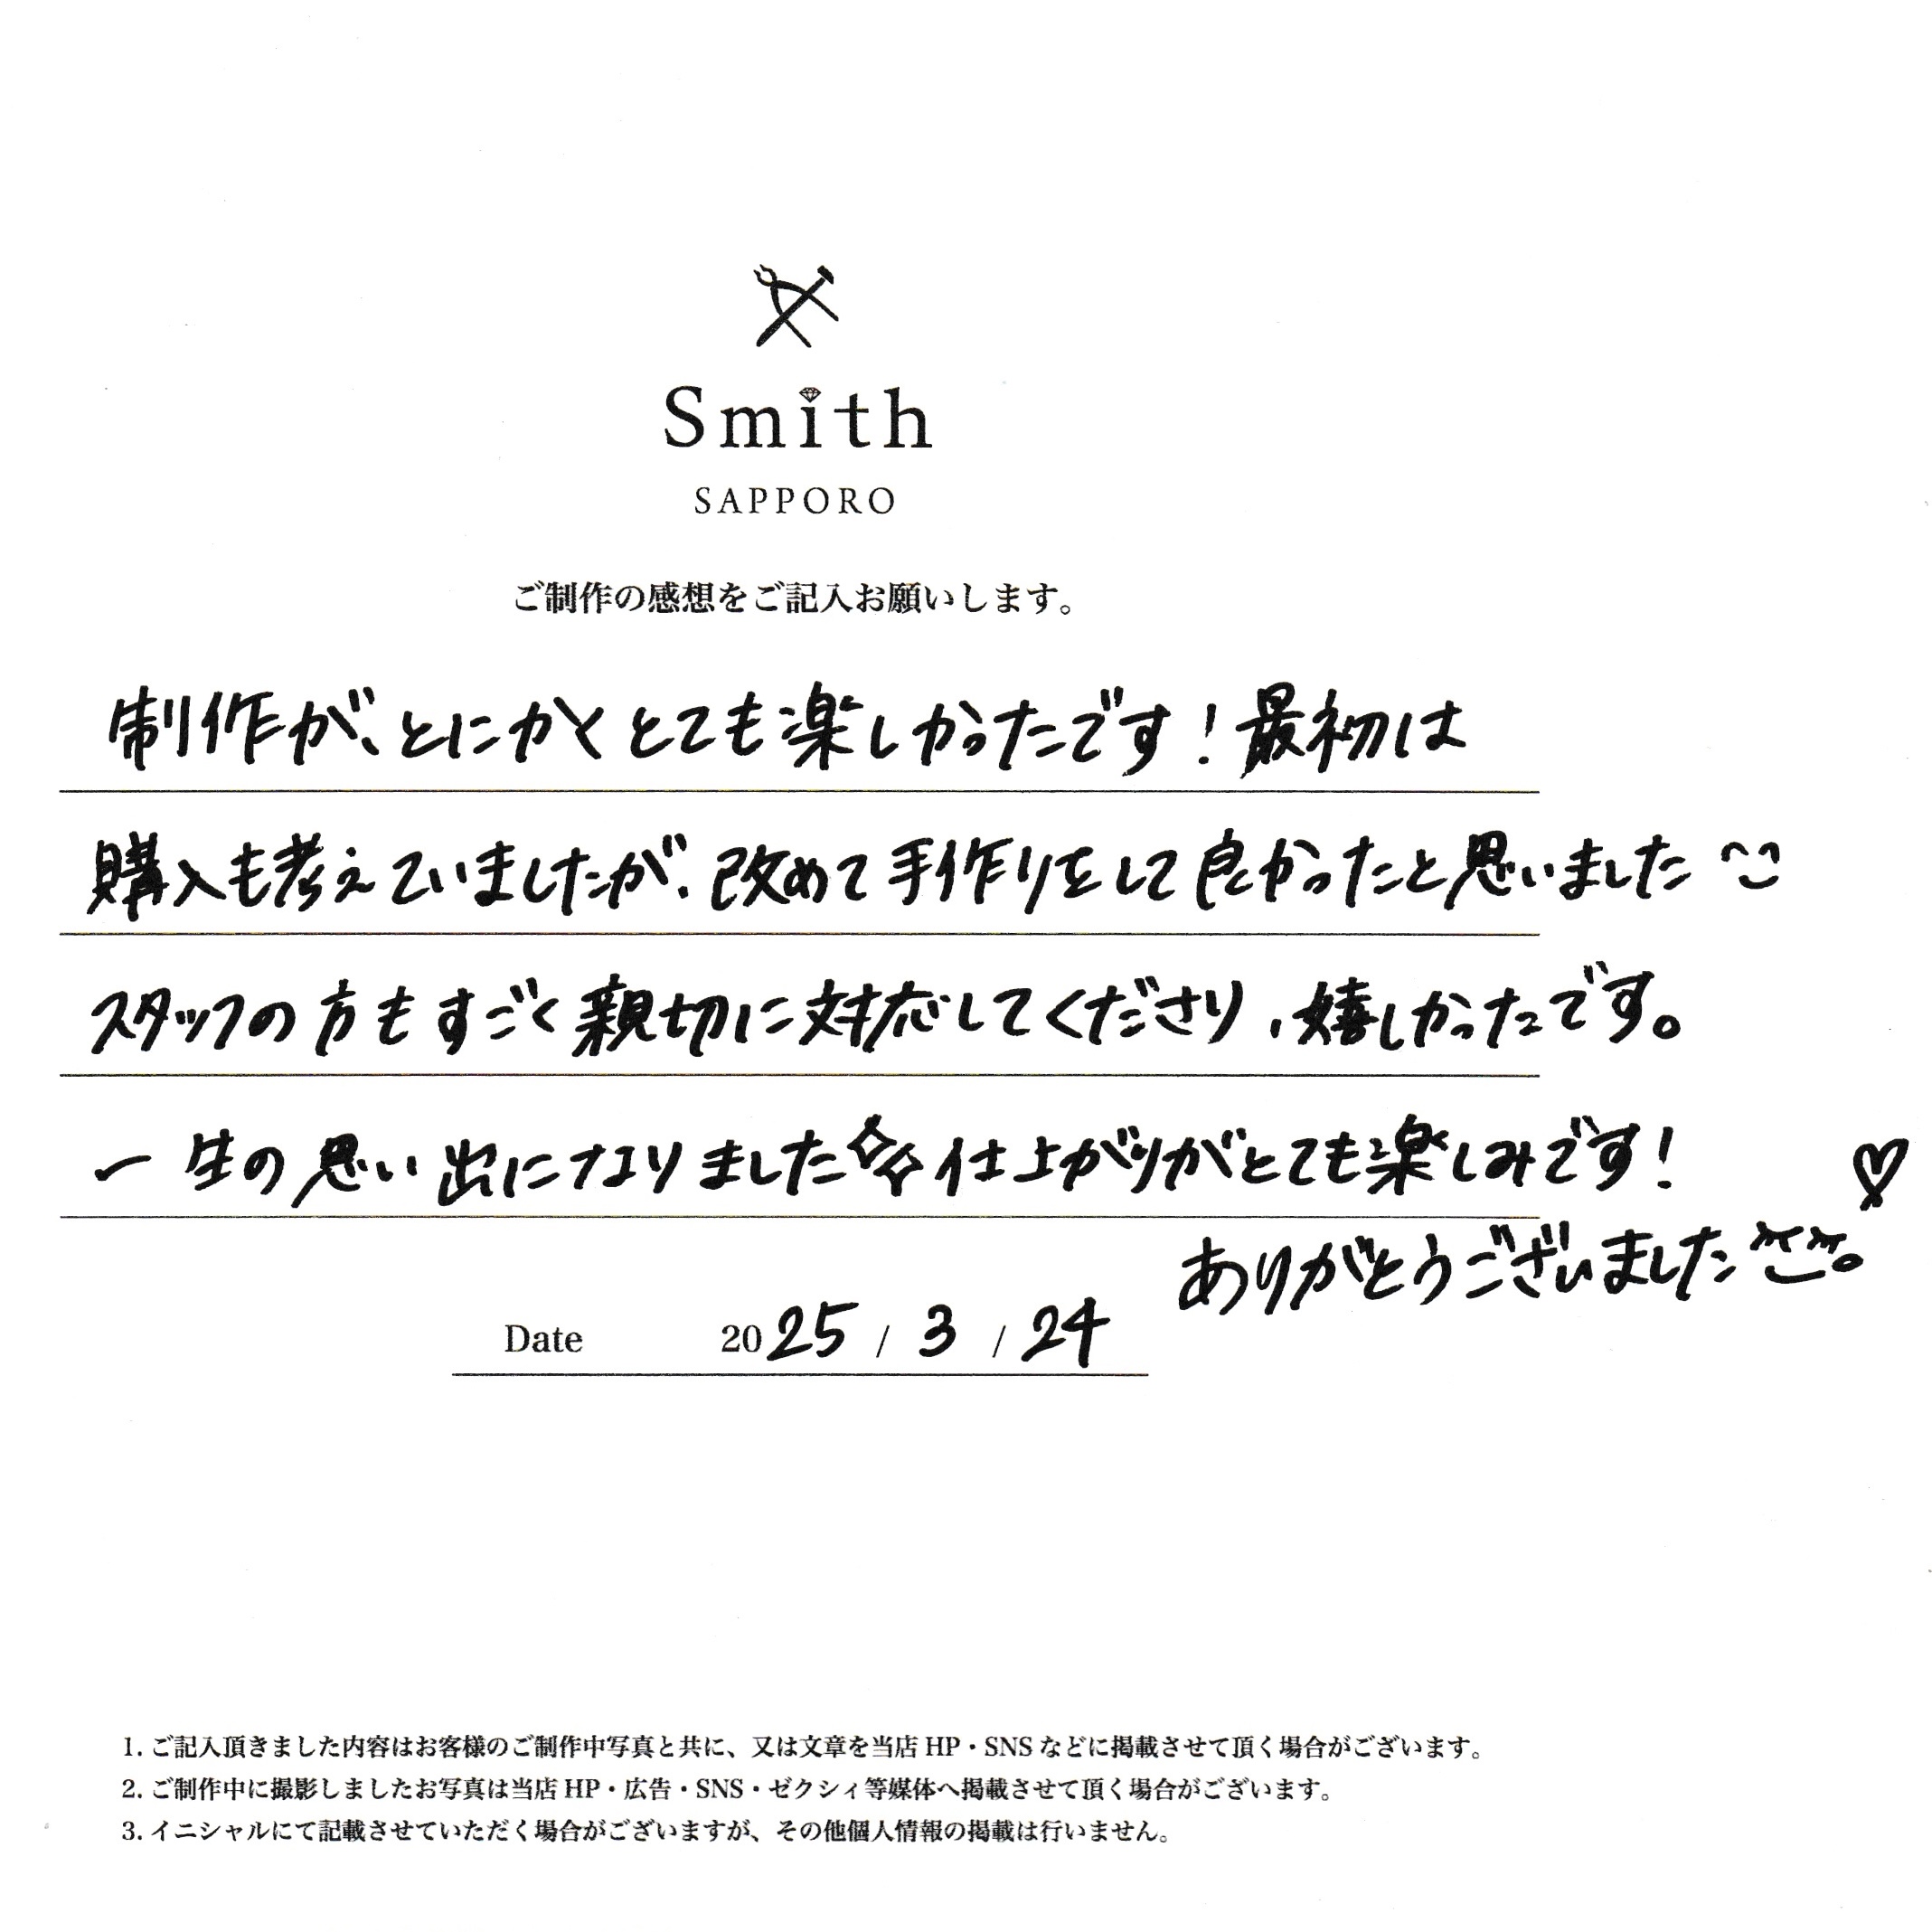 Smith
SAPPORO
ご制作の感想をご記入お願いします。
制作が、とにかくとても楽しかったです！最初は
購入も考えていましたが、改めて手作りをして良かったと思いました
スタッフの方もすごく親切に対応してくださり、嬉しかったです。
一生の思い出になりました 仕上がりがとても楽しみです！
ありがとうございました。
Date 2025 / 3 / 24
1. ご記入頂きました内容はお客様のご制作中写真と共に、又は文章を当店 HP・SNS などに掲載させて頂く場合がございます。
2. ご制作中に撮影しましたお写真は当店 HP・広告・SNS・ゼクシィ等媒体へ掲載させて頂く場合がございます。
3. イニシャルにて記載させていただく場合がございますが、その他個人情報の掲載は行いません。